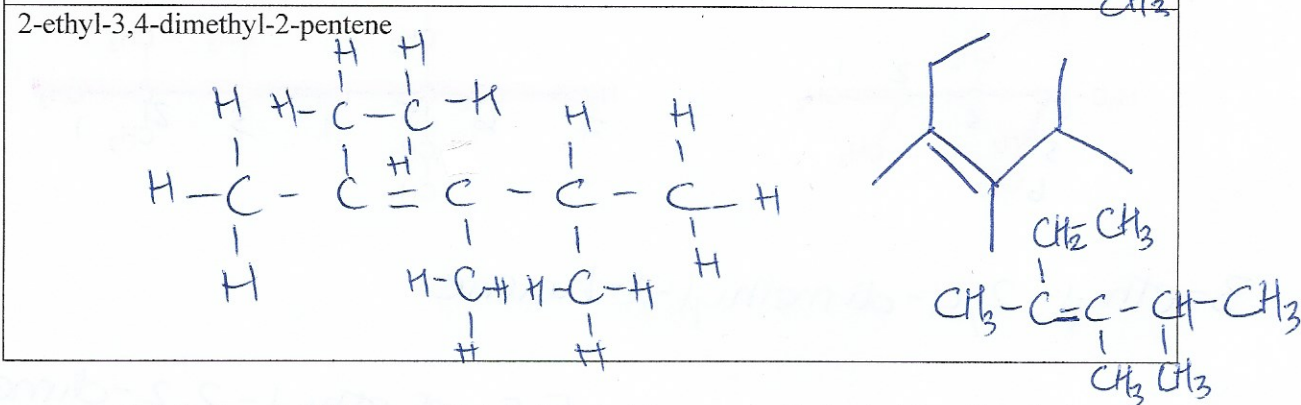 CH3
2-ethyl-3,4-dimethyl-2-pentene
H H
H H-C-C-H H H
H-C-C=C-C-C-H
H
H H-C-H H-C-H H
H H
CH2-CH3
CH3-C=C-CH-CH3
CH3 CH3